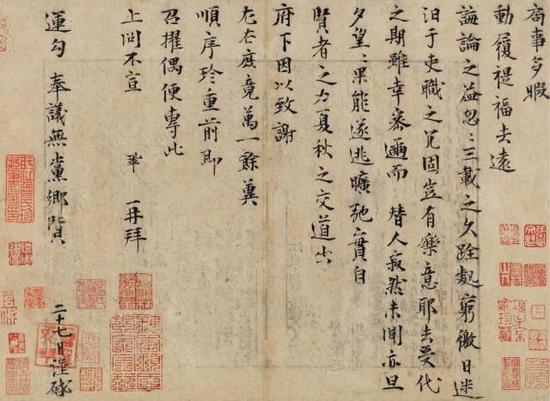 局事多暇
動履禔福去遠
誨論之益忽〻三載之久跧處窮徼日迷
汨于吏職之冗固豈有樂意耶去受代
之期雖幸密邇而替人寂然未聞亦旦
夕望〻果能遂逃曠弛實自
賢者之力夏秋之交道出
府下因以致謝
左右庶竟萬一餘冀
順序珍重前即
召擢偶便專此
上問不宣 鞏 再拜
運勾奉議無黨鄉賢 二十七日謹啟